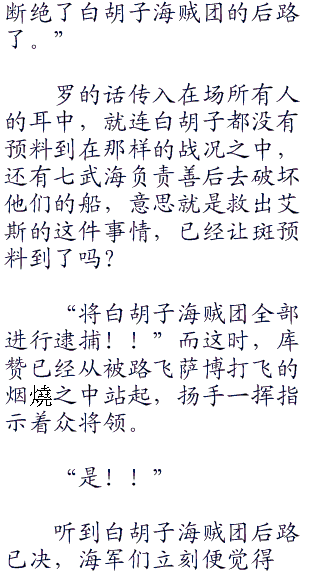 断绝了白胡子海贼团的后路
了。”
罗的话传入在场所有人
的耳中，就连白胡子都没有
预料到在那样的战况之中，
还有七武海负责善后去破坏
他们的船，意思就是救出艾
斯的这件事情，已经让斑预
料到了吗？
“将白胡子海贼团全部
进行逮捕！！”而这时，库
赞已经从被路飞萨博打飞的
烟燒之中站起，扬手一挥指
示着众将领。
“是！！”
听到白胡子海贼团后路
已决，海军们立刻便觉得